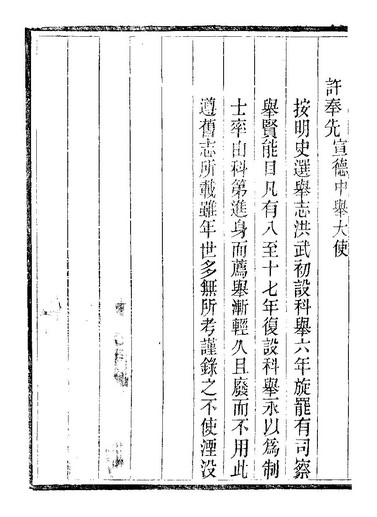 許奉先宣德中舉大使
按明史選舉志洪武初設科舉六年旋罷有司察
舉賢能目凡有八至十七年復設科舉永以爲制
士率由科第進身而薦舉漸輕久且廢而不用此
遵舊志所載雖年世多無所考謹錄之不使湮没